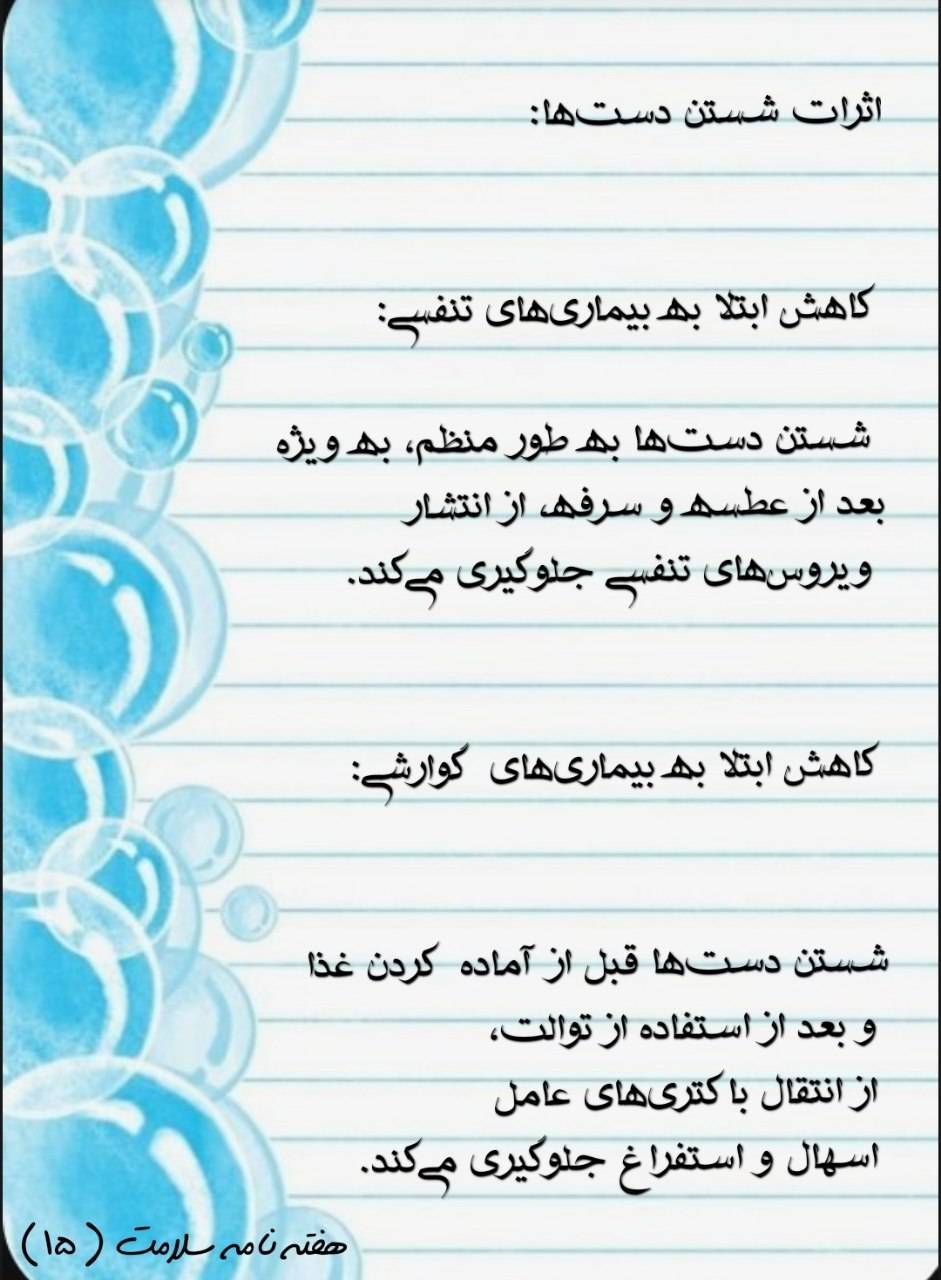 اثرات شستن دست‌ها:
کاهش ابتلا به بیماری‌های تنفسی:
شستن دست‌ها به طور منظم، به ویژه
بعد از عطسه و سرفه، از انتشار
ویروس‌های تنفسی جلوگیری می‌کند.
کاهش ابتلا به بیماری‌های گوارشی:
شستن دست‌ها قبل از آماده کردن غذا
و بعد از استفاده از توالت،
از انتقال باکتری‌های عامل
اسهال و استفراغ جلوگیری می‌کند.
هفته نامه سلامت (۱۵)